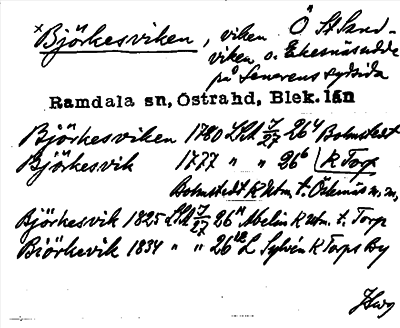 × Björkesviken, viken Ö St Sand-
viken o. Ekenäsudde
på Senorens sydsida
Ramdala sn, Östrahd, Blek. län
Björkesviken 1780 LSA J/27 26⁴ Bolmstedt
Björkesvik 1777 " " 26⁶ K Torp
Bolmstedt K Utm. t. Öskenäs m.m,
Björkesvik 1825 LSA J/27 26¹¹ Abelin K utm. t. Torp
Biörkevik 1834 " " 26¹² L Sylvén K Torps By